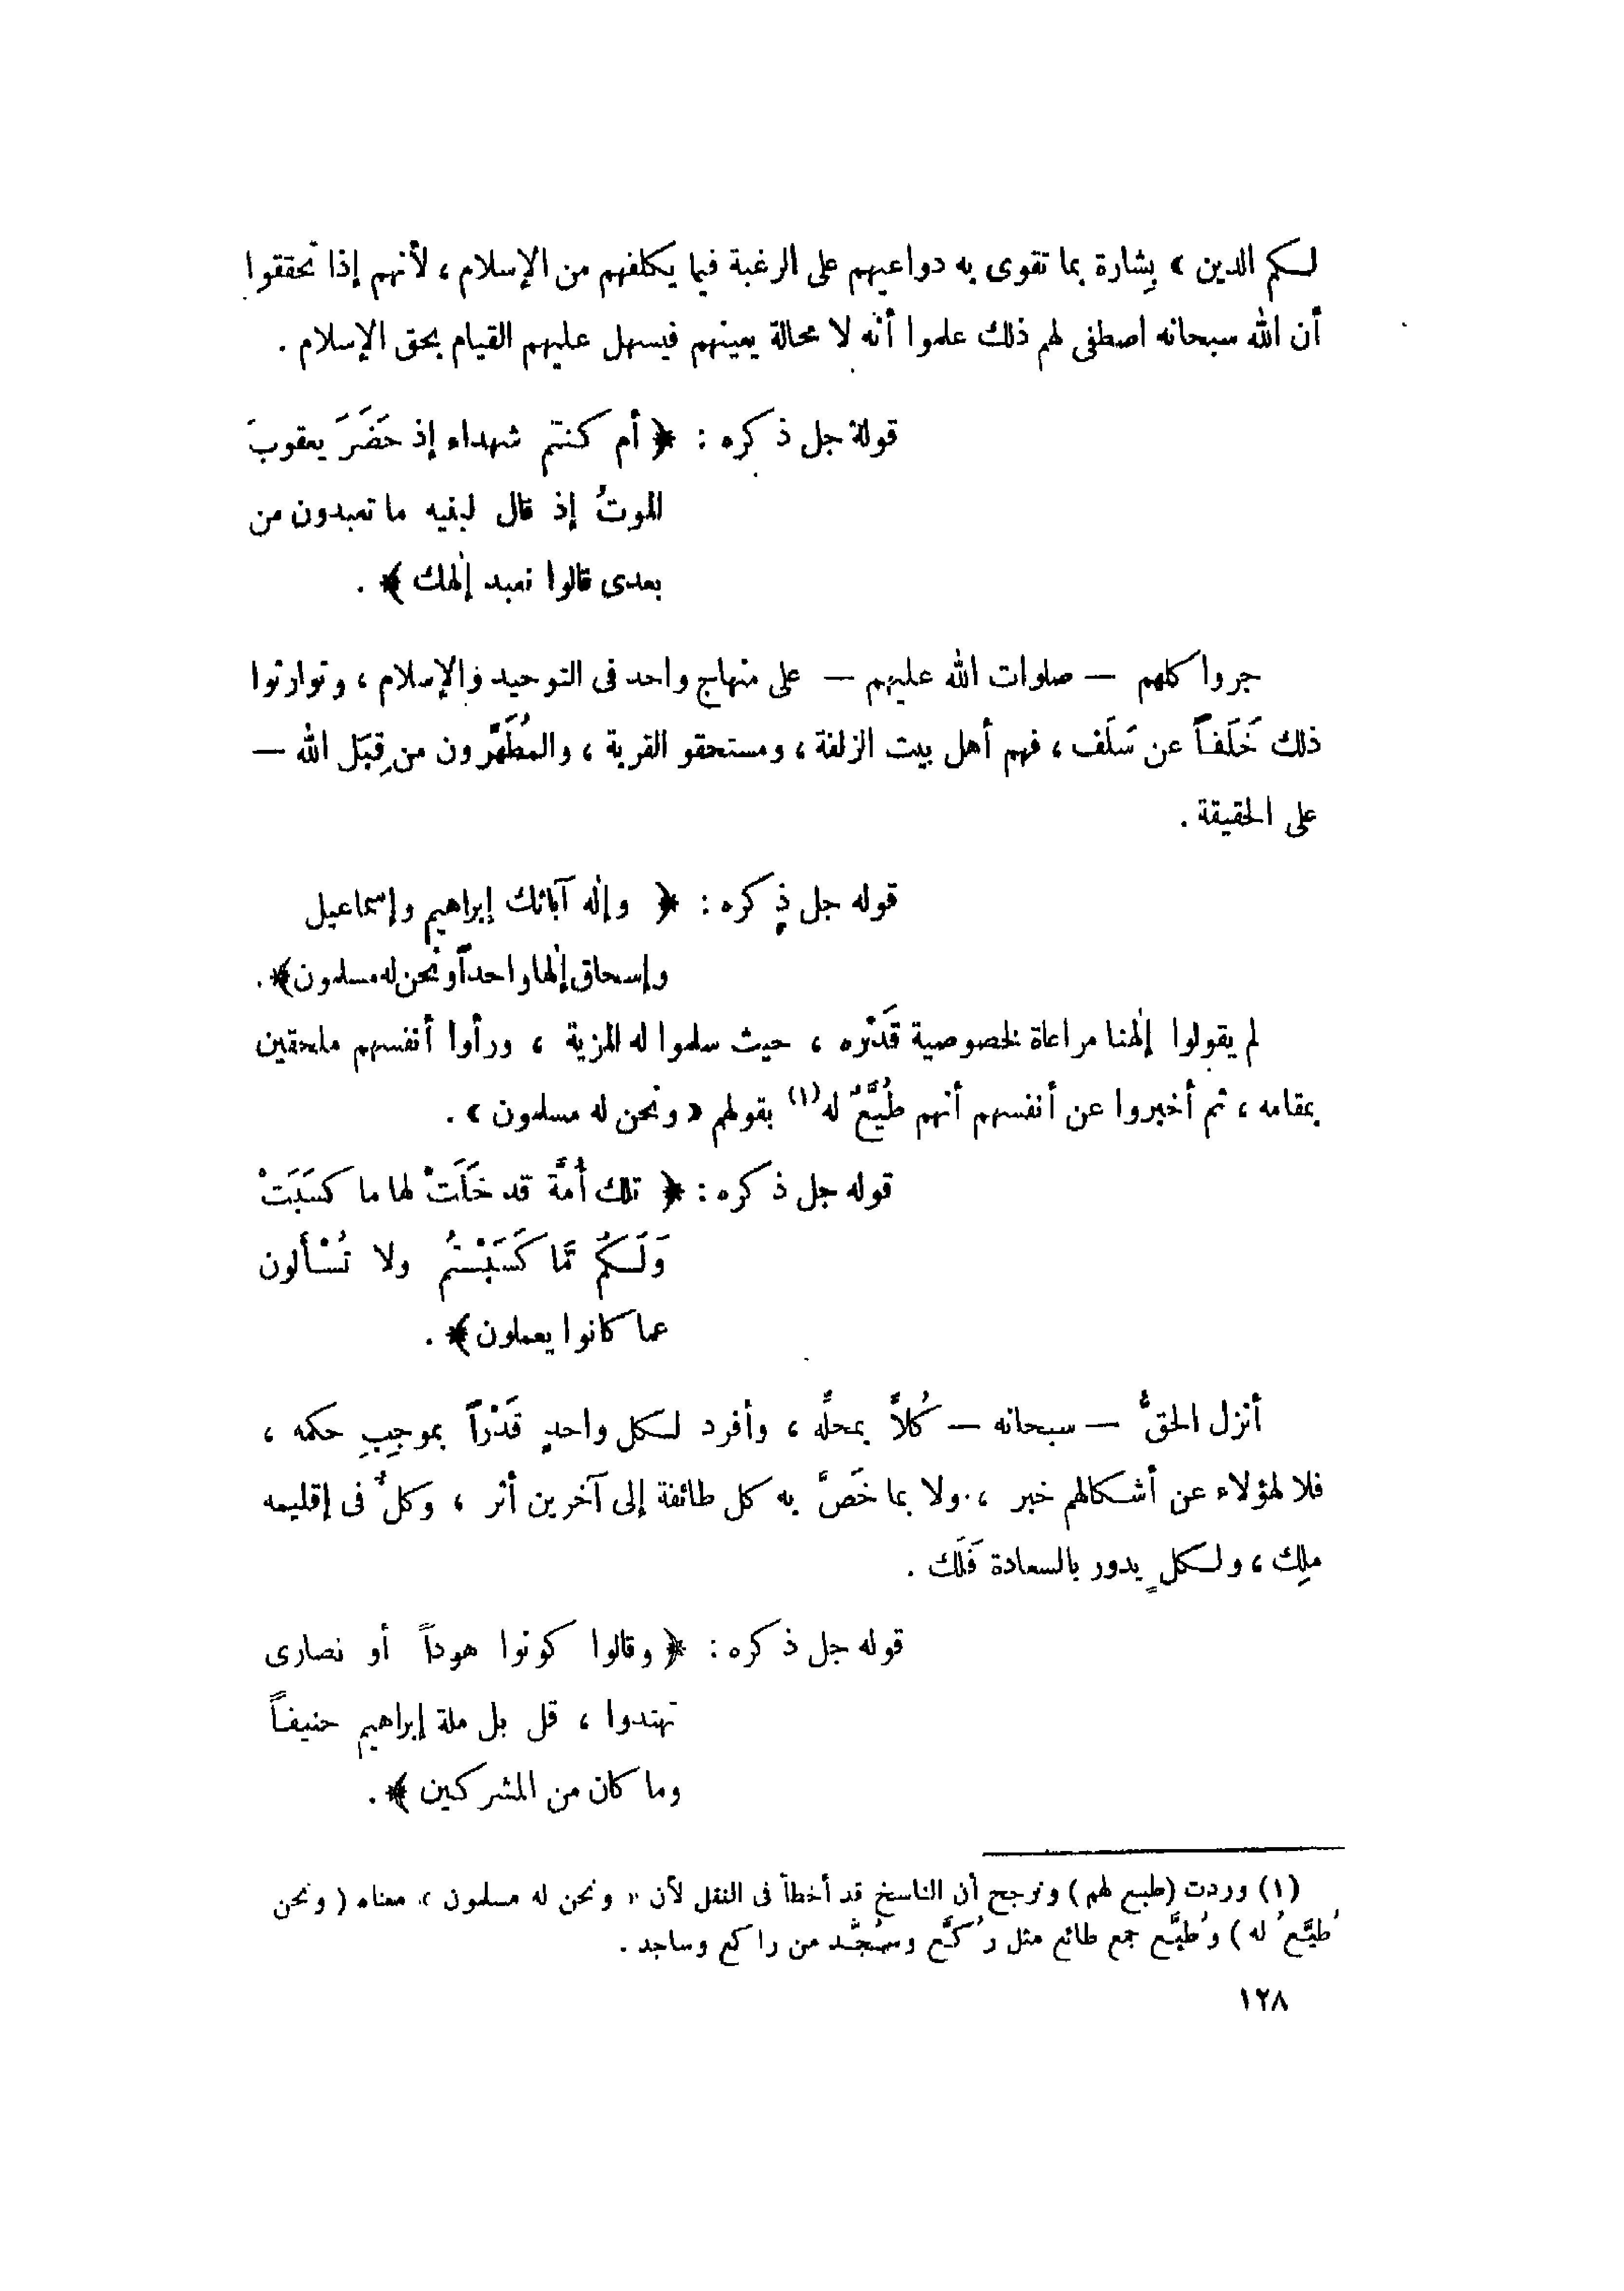 لكم الدين » بِشارة بما تقوى به دواعيهم على الرغبة فيما يكلفهم من الإسلام ، لأنهم إذا تحققوا
أن الله سبحانه اصطفى لهم ذلك علموا أنه لا محالة يعينهم فيسهل عليهم القيام بحق الإسلام .
قوله جل ذكره : ﴿ أم كنتم شهداء إذ حَضَرَ يعقوبَ
الموتُ إذ قال لبنيه ما تعبدون من
بعدى قالوا نعبد إلٰهك ﴾ .
جروا كلهم — صلوات الله عليهم — على منهاج واحد فى التوحيد والإسلام ، وتوارثوا
ذلك خَلَفاً عن سَلَف ، فهم أهل بيت الزلفة ، ومستحقو القربة ، والمُطَهَّرون من قِبَل الله —
على الحقيقة .
قوله جل ذِكره : ﴿ وإلٰه آبائك إبراهيم وإسماعيل
وإسحاق إلٰها واحداً ونحن له مسلمون ﴾ .
لم يقولوا إلٰهنا مراعاة لخصوصية قَدْره ، حيث سلموا له المزية ، ورأوا أنفسهم ملحقين
بمقامه ، ثم أخبروا عن أنفسهم أنهم طُيَّعٌ له(١) بقولهم « ونحن له مسلمون » .
قوله جل ذكره : ﴿ تلك أُمَّة قد خَلَتْ لها ما كسَبَتْ
وَلَكُم مَّا كَسَبْتُم ولا تُسْألون
عما كانوا يعملون ﴾ .
أنزل الحقُّ — سبحانه — كُلاًّ بمحلِّه ، وأفرد لكل واحدٍ قَدْراً بموجِبِ حكمه ،
فلا لهؤلاء عن أشكالهم خبر ، ولا بما خَصَّ به كل طائفة إلى آخرين أثر ، وكلٌّ فى إقليمه
ملِك ، ولكلٍ يدور بالسعادة فَلَك .
قوله جل ذكره : ﴿ وقالوا كونوا هوداً أو نصارى
تهتدوا ، قل بل ملة إبراهيم حنيفاً
وما كان من المشركين ﴾ .
(١) وردت (طبع لهم) ونرجح أن الناسخ قد أخطأ فى النقل لأن « ونحن له مسلمون » معناه ( ونحن
طُيَّعٌ له ) وطُيَّع جمع طائع مثل رُكَّع وسُجَّد من راكع وساجد .
١٢٨